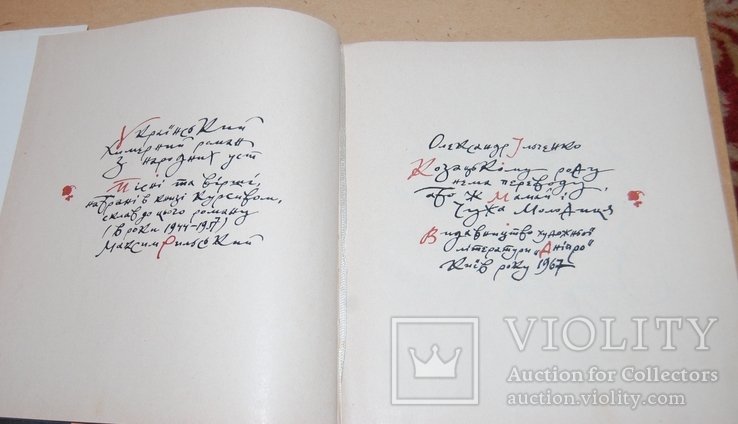 Український
Химерний роман
З народних уст
Пісні та вірші,
набрані в книзі Курсивом,
склав до цього роману
(в роки 1944-1957)
Максим Рильський
Олександр Ільченко
Козацькому роду
нема переводу,
або ж Мамай і
Чужа Молодиця
Видавництво художньої
літератури „Дніпро"
Київ року 1967
VIOLITY
Auction for Collectors
auction.violity.com